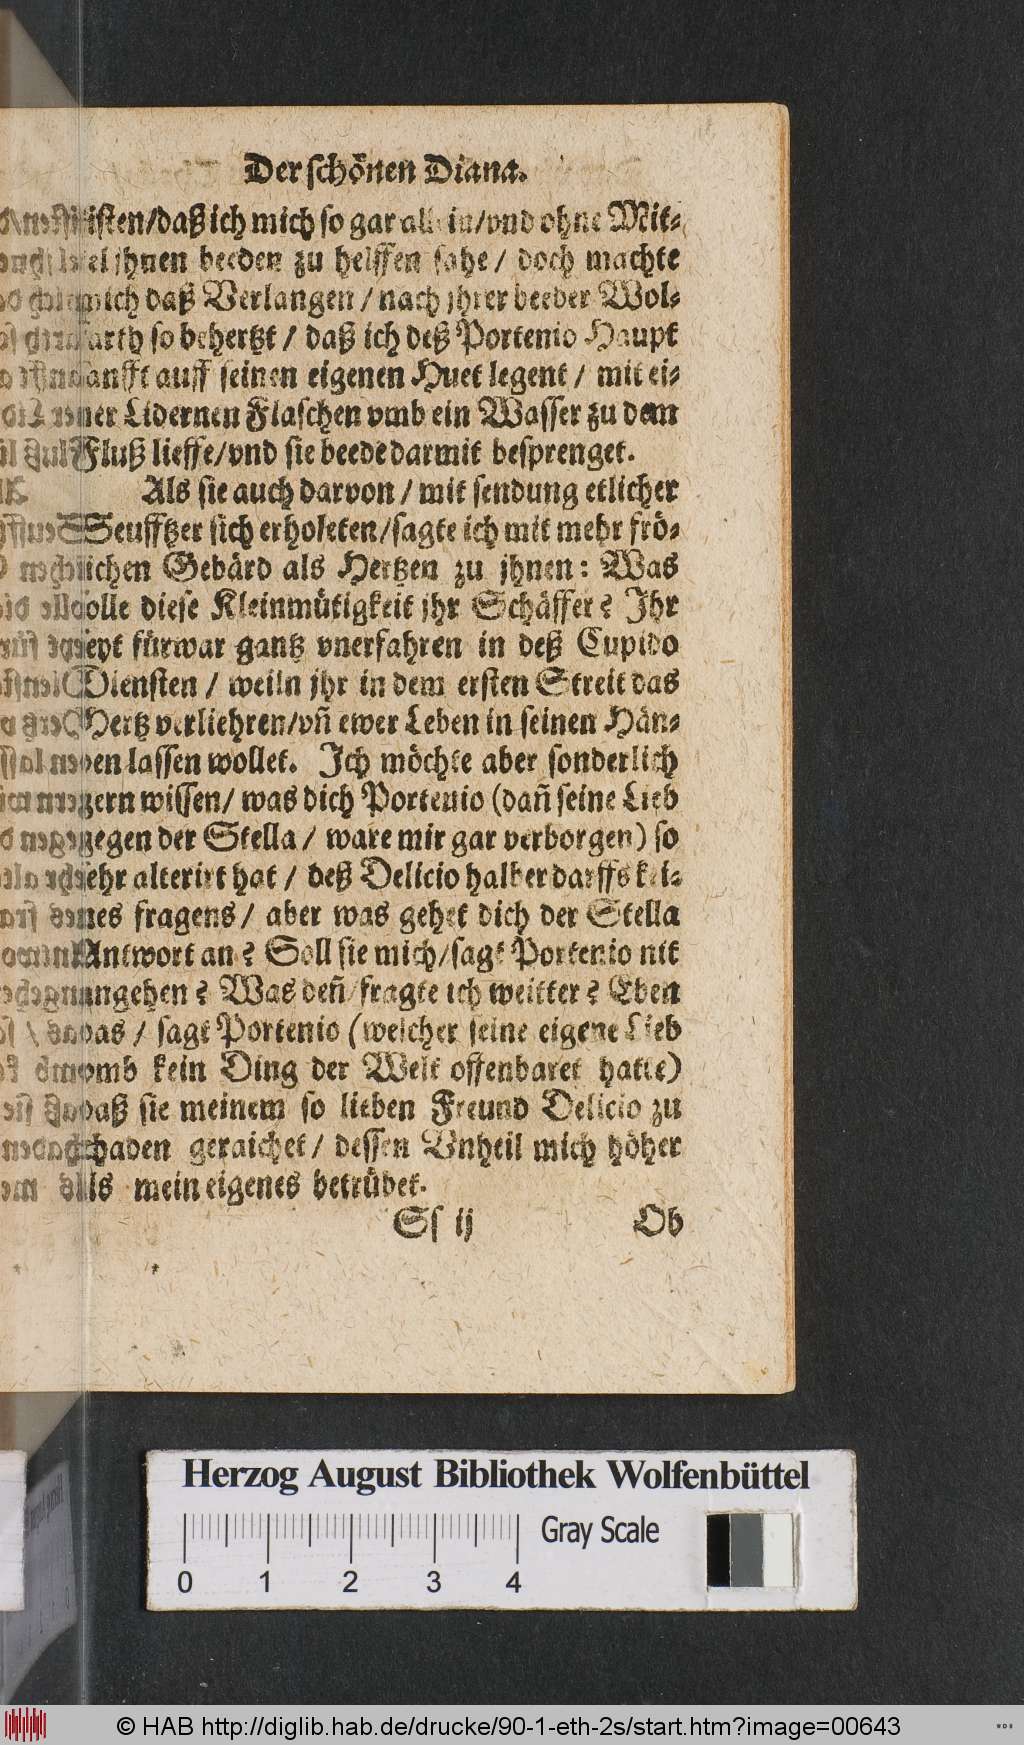 Der schönen Diana.
isten/daß ich mich so gar allein/vnd ohne Mit-
tel jhnen beeden zu helffen sahe / doch machte
mich daß Verlangen / nach jhrer beeder Wol-
farth so behertzt / daß ich deß Portenio Haupt
sanfft auff seinen eigenen Huet legent / mit ei-
ner Lidernen Flaschen vmb ein Wasser zu dem
Fluß lieffe/vnd sie beede darmit besprenget.
Als sie auch darvon / mit sendung etlicher
Seufftzer sich erholeten/sagte ich mit mehr frö-
lichen Gebärd als Hertzen zu jhnen: Was
solle diese Kleinmütigkeit jhr Schäffer? Ihr
seyt fürwar gantz vnerfahren in deß Cupido
Diensten / weiln jhr in dem ersten Streit das
Hertz verliehren/vñ ewer Leben in seinen Hän-
den lassen wollet. Ich möchte aber sonderlich
gern wissen/ was dich Portenio (dañ seine Lieb
gegen der Stella / ware mir gar verborgen) so
sehr alterirt hat / deß Delicio halber darffs kei-
nes fragens/ aber was gehet dich der Stella
Antwort an? Soll sie mich/sagt Portenio nit
angehen? Was deñ/fragte ich weitter? Eben
das / sagt Portenio (welcher seine eigene Lieb
vmb kein Ding der Welt offenbaret hatte)
daß sie meinem so lieben Freund Delicio zu
schaden geraichet/ dessen Vnheil mich höher
als mein eigenes betrübet.
Ss ij Ob
Herzog August Bibliothek Wolfenbüttel
Gray Scale
0 1 2 3 4
© HAB http://diglib.hab.de/drucke/90-1-eth-2s/start.htm?image=00643